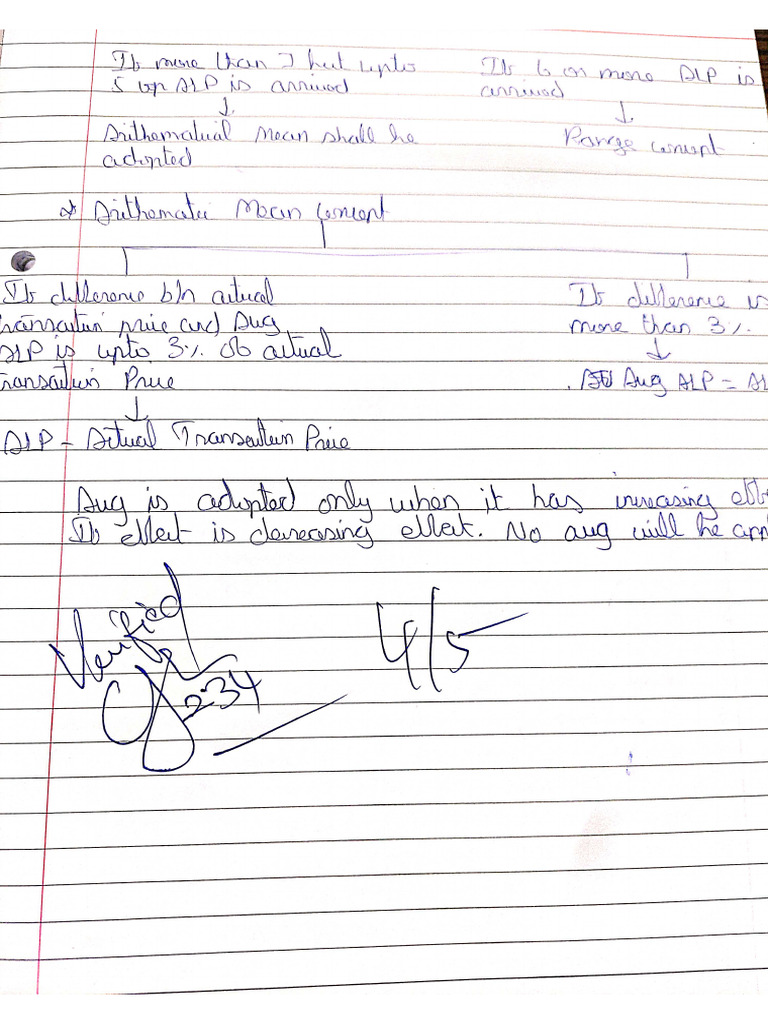 If more than 1 but upto
5 ALP is arrived
↓
Arithematical Mean shall be
adopted
If 6 or more ALP is
arrived
↓
Range Concept
* Arithematic Mean Concept
If difference b/n actual
transaction price and Avg
ALP is upto 3% of actual
transaction Price
↓
ALP = Actual Transaction Price
If difference is
more than 3%.
↓
Avg ALP = AL
Avg is adopted only when it has increasing effe
If effect is decreasing effect. No avg will be app
Verified
234
4/5